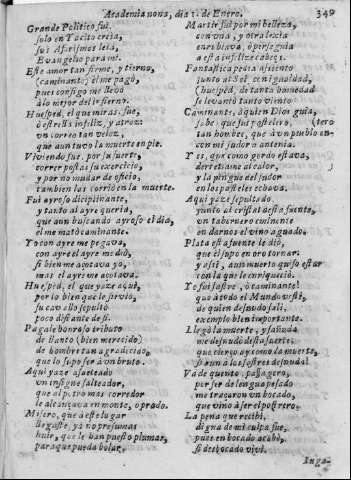 Academia nona, dia 1. de Enero. 349
Grande Politico fui,
solo en Tacito creia,
sus Aforismos leía,
Evangelio para mi.
Este amor tan firme, y tierno,
(caminante) el me pagò,
pues consigo me llevò
a lo mejor del infierno.
Huesped, el que miras, fue,
ô estrella infeliz, y atroz:
un correo tan veloz,
que aun tuvo la muerte en pie.
Viviendo fue, por su suerte,
correr postas su exercicio,
y por no mudar de oficio,
tambien las corriò en la muerte.
Fui ayroso diciplinante,
y tanto al ayre queria,
que aun buscando ayroso el dia,
el me matò caminante.
Yo con ayre me pegava,
con ayre el ayre me diò,
si bien me açotava yo,
mas el ayre me açotava.
Huesped, el que yaze aqui,
por lo bien que le sirvio,
su cavallo sepultò
poco distante de si.
Pagale honroso tributo
de llanto (bien merecido)
de hombre tan agradecido,
que lo supo ser à un bruto.
Aqui yaze assaeteado
un insigne salteador,
que al potro mas corredor
le alcançava en monte, o prado.
Misero, que à este lugar
llegaste, yà no presumas
huir, que le han puesto plumas,
para que pueda bolar.
Martir fui por mi belleza,
con una, y otra lexia
enrubiava, ò perseguia
a esta infelize cabeça.
Fantastica pedia assiento
junto al Sol con igualdad,
(huesped) de tanta humedad
se levantò tanto viento.
Caminante, à quien Dios guia,
sabe que fui pastelero, (tero
tan hombre, que à un pueblo en-
con mi sudor à antenia.
Y es, que como gordo estava,
derretiame al calor,
y la pringue del sudor
en los pasteles echava.
Aqui yaze sepultado
junto al cristal desta fuente,
un tabernero eminente
en darnos el vino aguado.
Plata esta fuente le diò,
que el supo en oro tornar:
y assi, aun muerto quiso estar
con la que le enriqueciò.
Yo fui sastre, ò caminante!
que à todo el Mundo vesti,
de quien desnudo fali,
exemplo bien importante.
Llegò la muerte, y sañuda
me desnudò desta suerte:
que cierto ay como la muerte,
si aun à los sastres desnuda?
Và de quento, passagero,
por ser de lengua pesado
me traçaron un bocado,
que vino à ser el postrero.
La pena que recibi,
digna de mi culpa fue,
pues en bocado acabè,
si desbocado vivi.
Iuga-